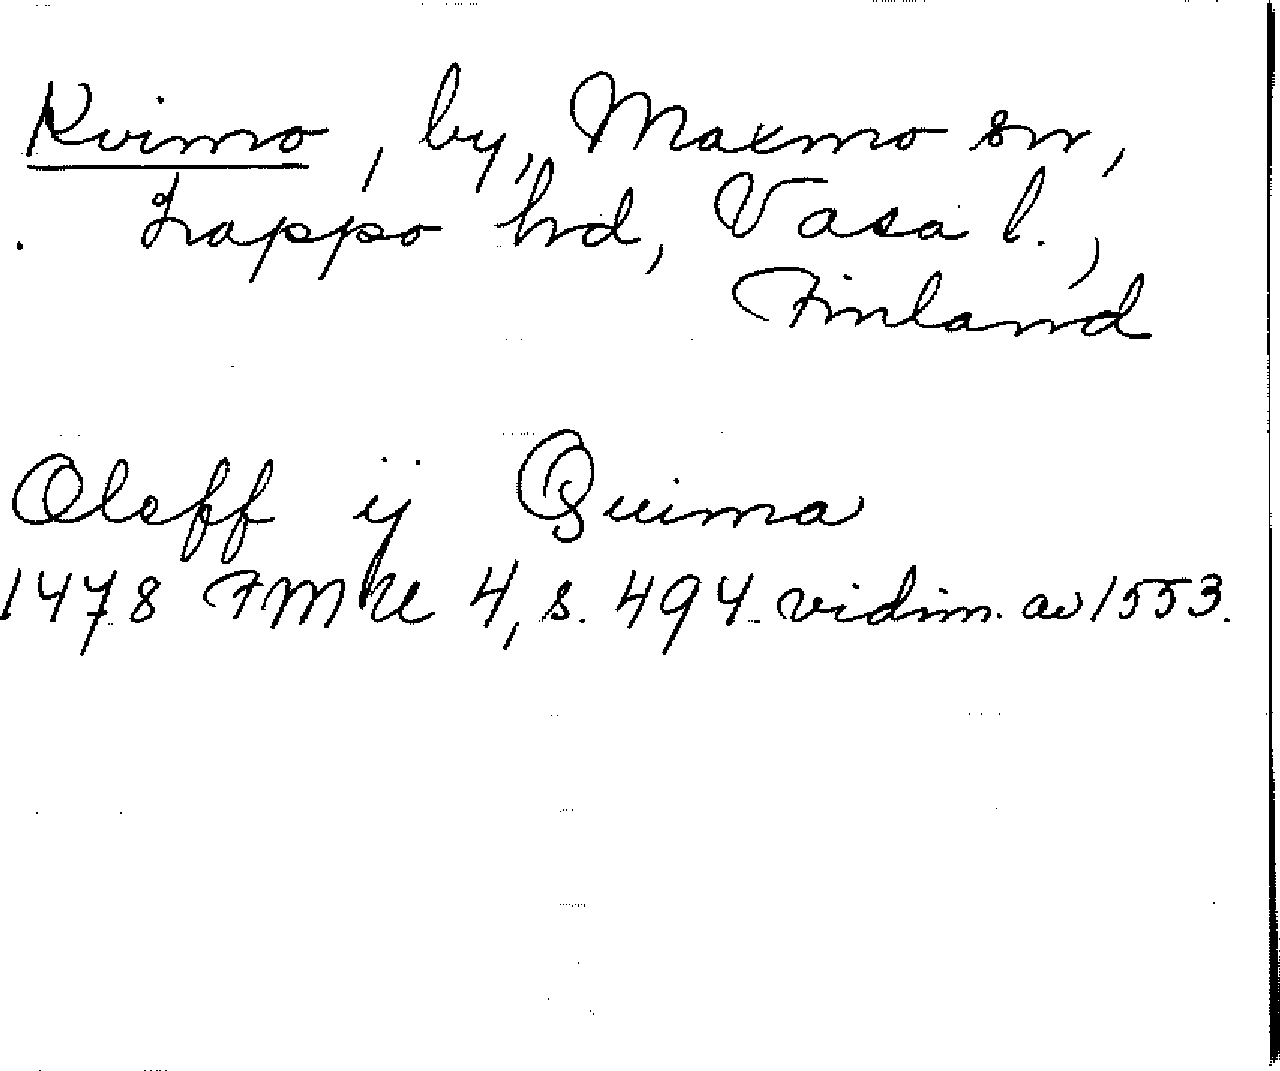 Kvimo, by, Maxmo sn,
Lappo hrd, Vasa l.,
Finland
Oleff ij Quima
1478 FMU 4, s. 494 vidim. av 1553.